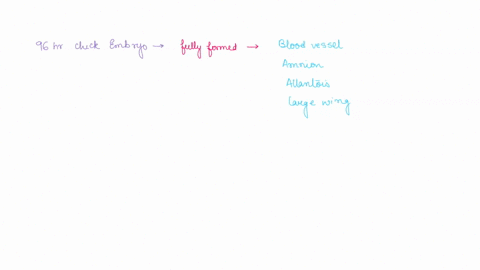 96 hr chick Embryo → fully formed → Blood vessel
Amnion
Allantois
Large wing